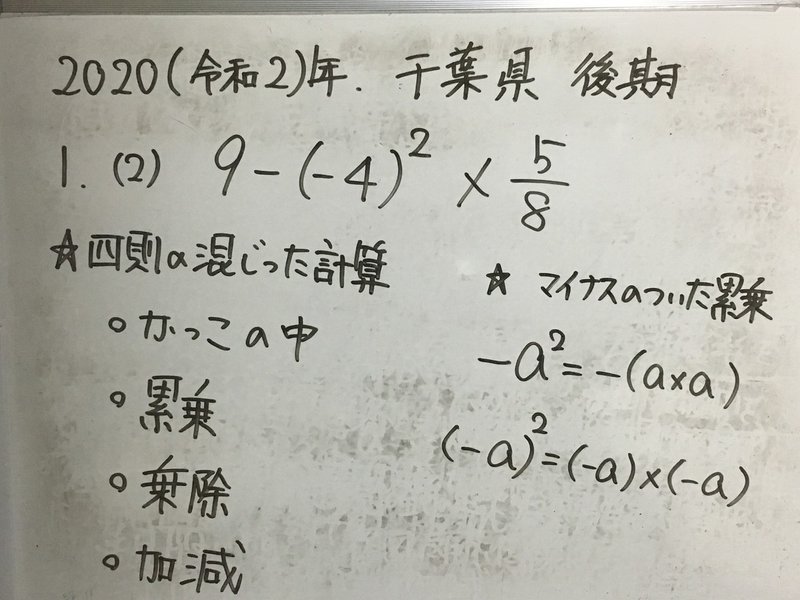 2020(令和2)年. 千葉県 後期
1. (2) 9-(-4)² × 5/8
☆四則の混じった計算
○かっこの中
○累乗
○乗除
○加減
☆ マイナスのついた累乗
-a²=-(a×a)
(-a)²=(-a)×(-a)